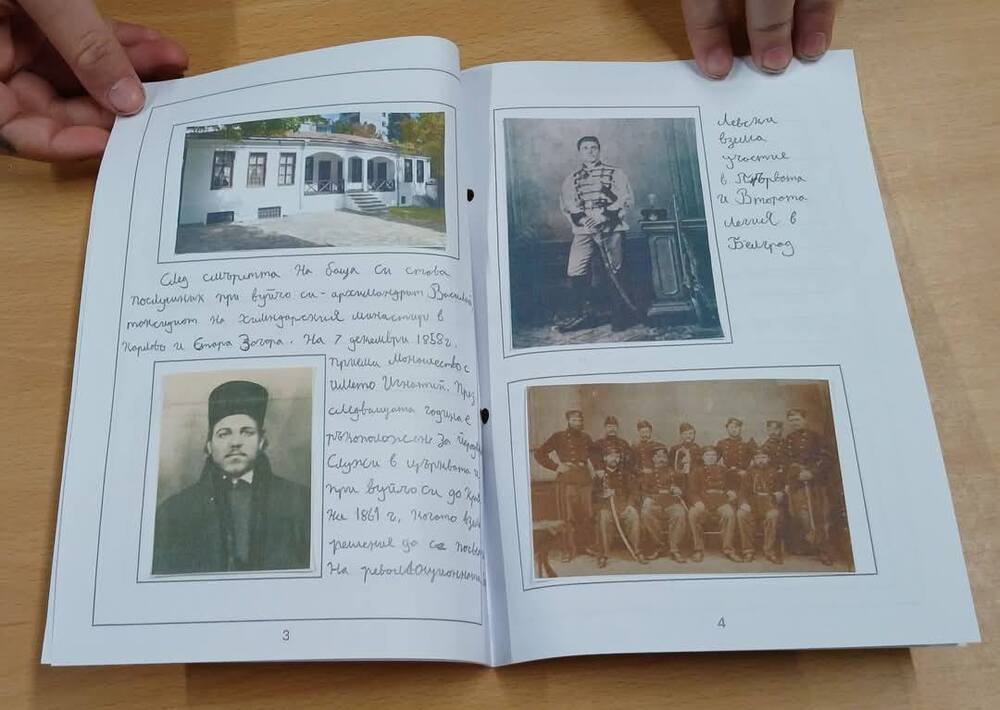 След смъртта на баща си става
послушник при вуйчо си - архимандрит Василий
таксидиот на хилендарския манастир в
Карлово и Стара Загора. На 7 декември 1858г.
приема монашество с
името Игнатий. През
следващата година е
ръкоположен за
Служи в църквата и
при вуйчо си до
на 1861 г. когато
решение да се
на революционната
3
Левски
взима
участие
в Първата
и Втората
легия в
Белград
4